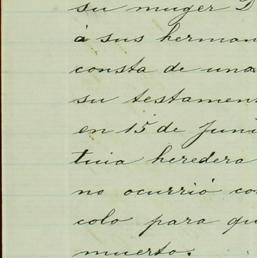 su muger D
á sus herman
consta de una
su testament
en 15 de Juni
tuia heredera
no ocurrió co
colo para qu
muerto.